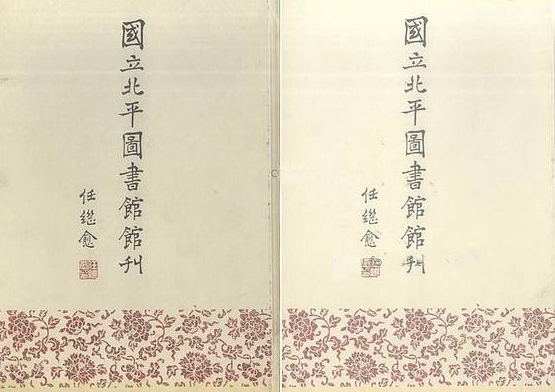 國立北平圖書館館刊
任繼愈
國立北平圖書館館刊
任繼愈